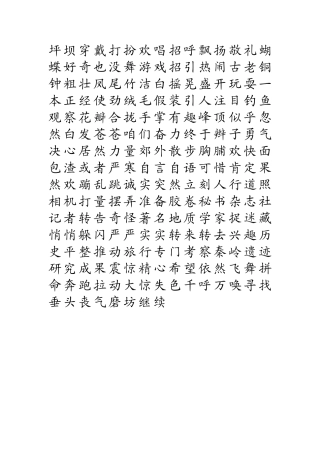 坪坝穿戴打扮欢唱招呼飘扬敬礼蝴
蝶好奇也没舞游戏招引热闹古老铜
钟粗壮凤尾竹洁白摇晃盛开玩耍一
本正经使劲绒毛假装引人注目钓鱼
观察花瓣合拢手掌有趣峰顶似乎忽
然白发苍苍咱们奋力终于辫子勇气
决心居然力量外散步胸脯欢快一面
包渣或者严寒自言自语可惜肯定果
然欢蹦乱跳诚实突然立刻人行道照
相机打扫怪著名准备胶卷秘书杂志社
记者转告摆弄名地质学家捉迷藏
悄悄躲闪严严实实转来转去兴趣历
史平整推动旅行专门考察秦岭遗迹
研究成果震惊精心希望依然飞舞拼
命奔跑拉动大惊失色千呼万唤寻找
垂头丧气磨坊继续